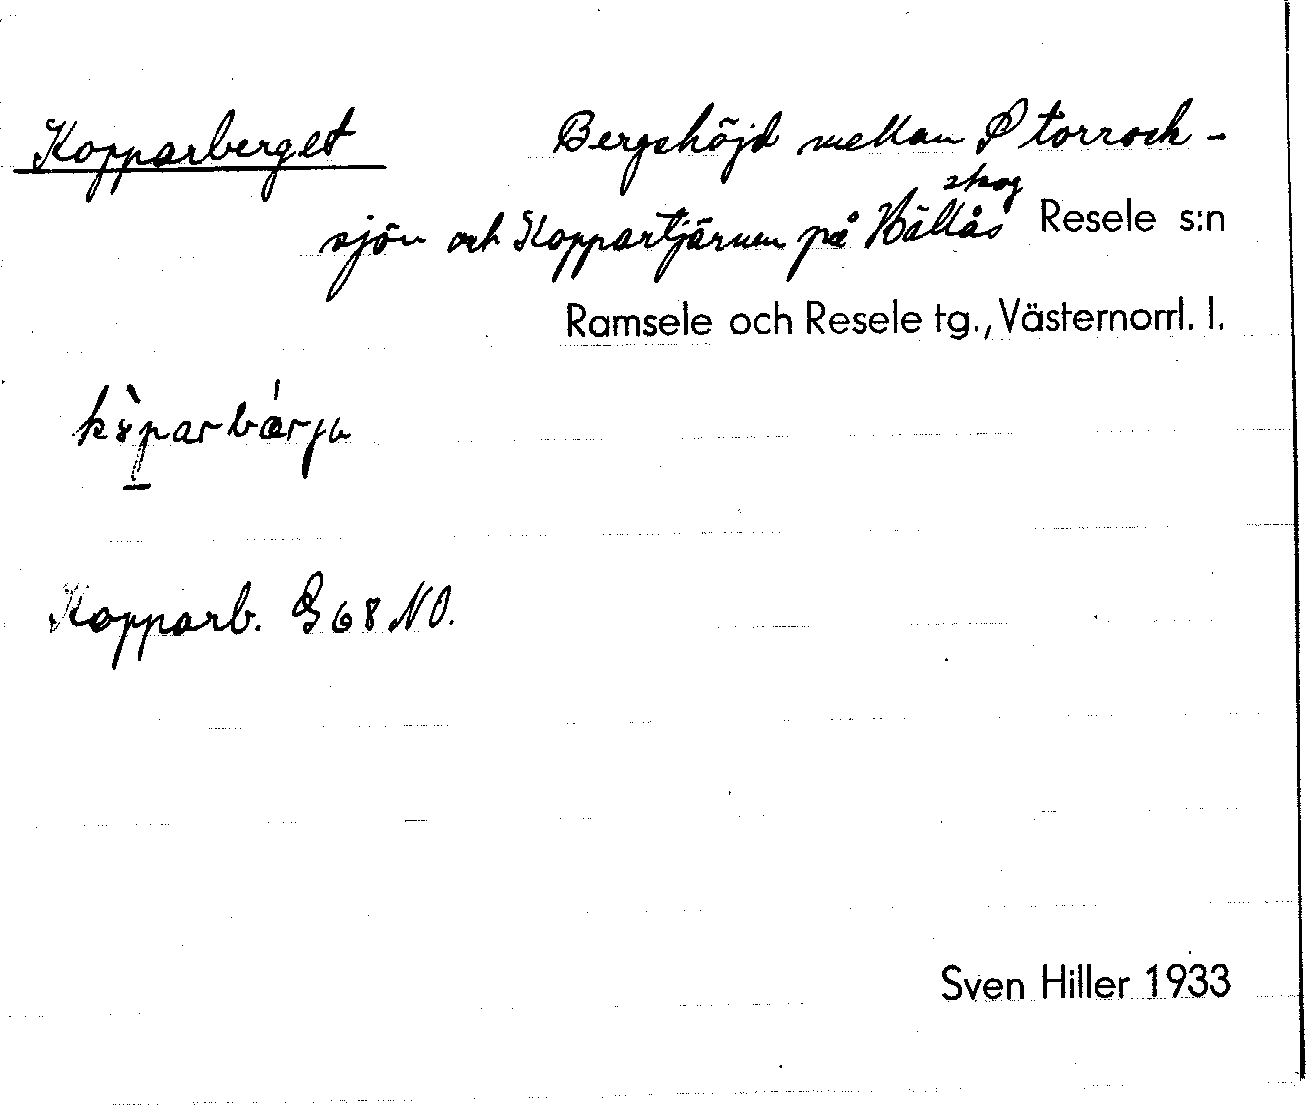 Kopparberget Bergshöjd mellan Storroch-
sjön och Koppartjärnen på Hällåsskog Resele s:n
Ramsele och Resele tg., Västernorrl. l.
Kopparb. G 68 NO.
Sven Hiller 1933